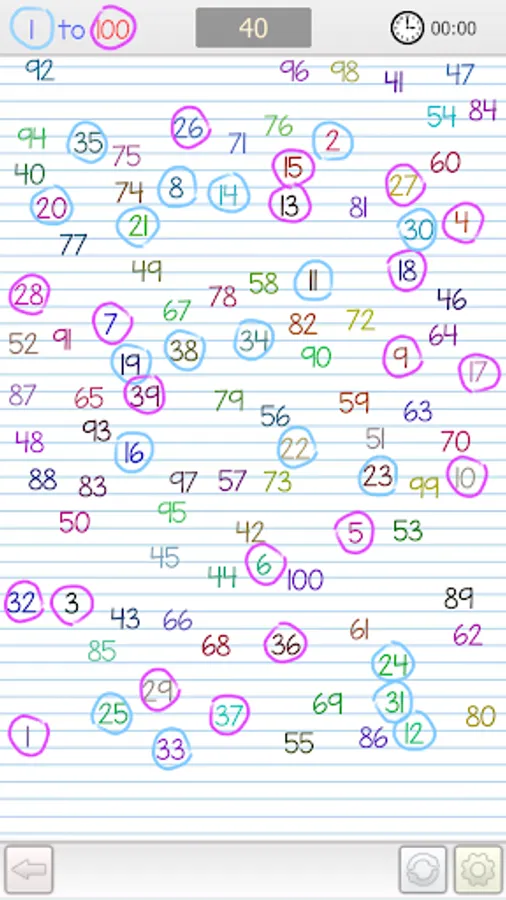 1 to 100 40 00:00
92 96 98 41 47
54 84
94 35 75 26 71 76 2
40 15 60
20 74 8 14 13 81 27
21 30 4
77
49 58 11 18
28 78 46
7 67 82 72
52 91 19 38 34 90 9 64
17
87 65 39 79 56 59 63
48 93 16 22 51 70
88 83 97 57 73 23 99 10
50 95 42 5 53
45 44 6 100
32 3 89
43 66 61 62
85 68 36
24
29 69 31
25 37 80
1 33 55 86 12